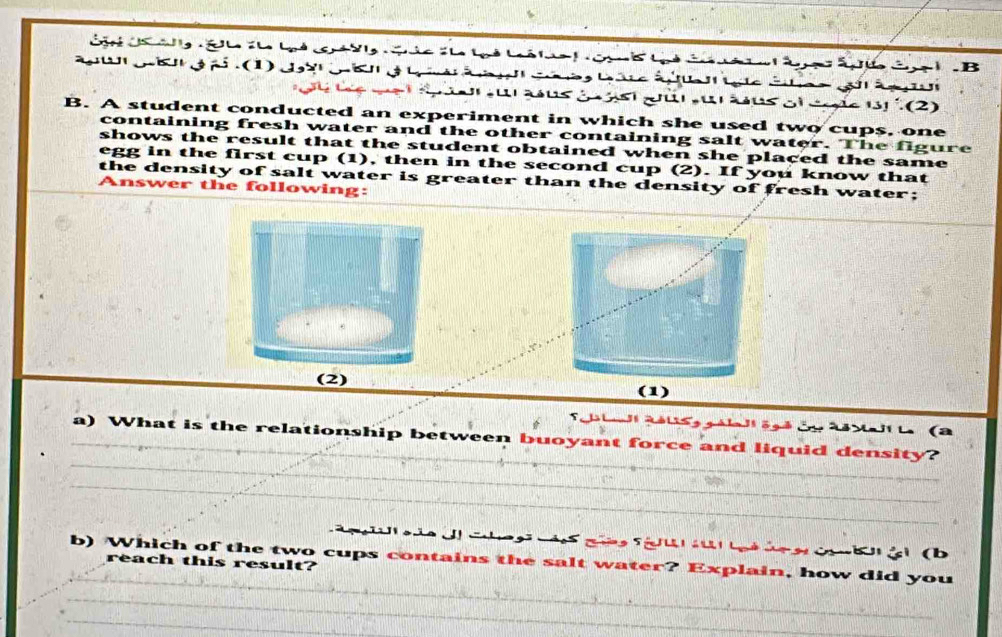 B. أجرت طالبة تجربة استخدمت فيها كأسين، إحداهما فيها ماء عذب، والأخرى فيها ماء مالح، والشكل يبيّن
النتيجة التي حصلت عليها الطالبة عندما وضعت البيضة نفسها في الكأس الأولى (1)، ثم في الكأس الثانية
(2). إذا علمت أن كثافة الماء المالح أكبر من كثافة الماء العذب؛ أجب عما يأتي:
B. A student conducted an experiment in which she used two cups, one
containing fresh water and the other containing salt water. The figure
shows the result that the student obtained when she placed the same
egg in the first cup (1), then in the second cup (2). If you know that
the density of salt water is greater than the density of fresh water;
Answer the following:
(2) (1)
a) ما العلاقة بين قوة الطفو وكثافة السائل؟
a) What is the relationship between buoyant force and liquid density?
b) أيّ الكأسين يوجد فيها الماء المالح؟ وضّح كيف توصلت إلى هذه النتيجة.
b) Which of the two cups contains the salt water? Explain, how did you
reach this result?